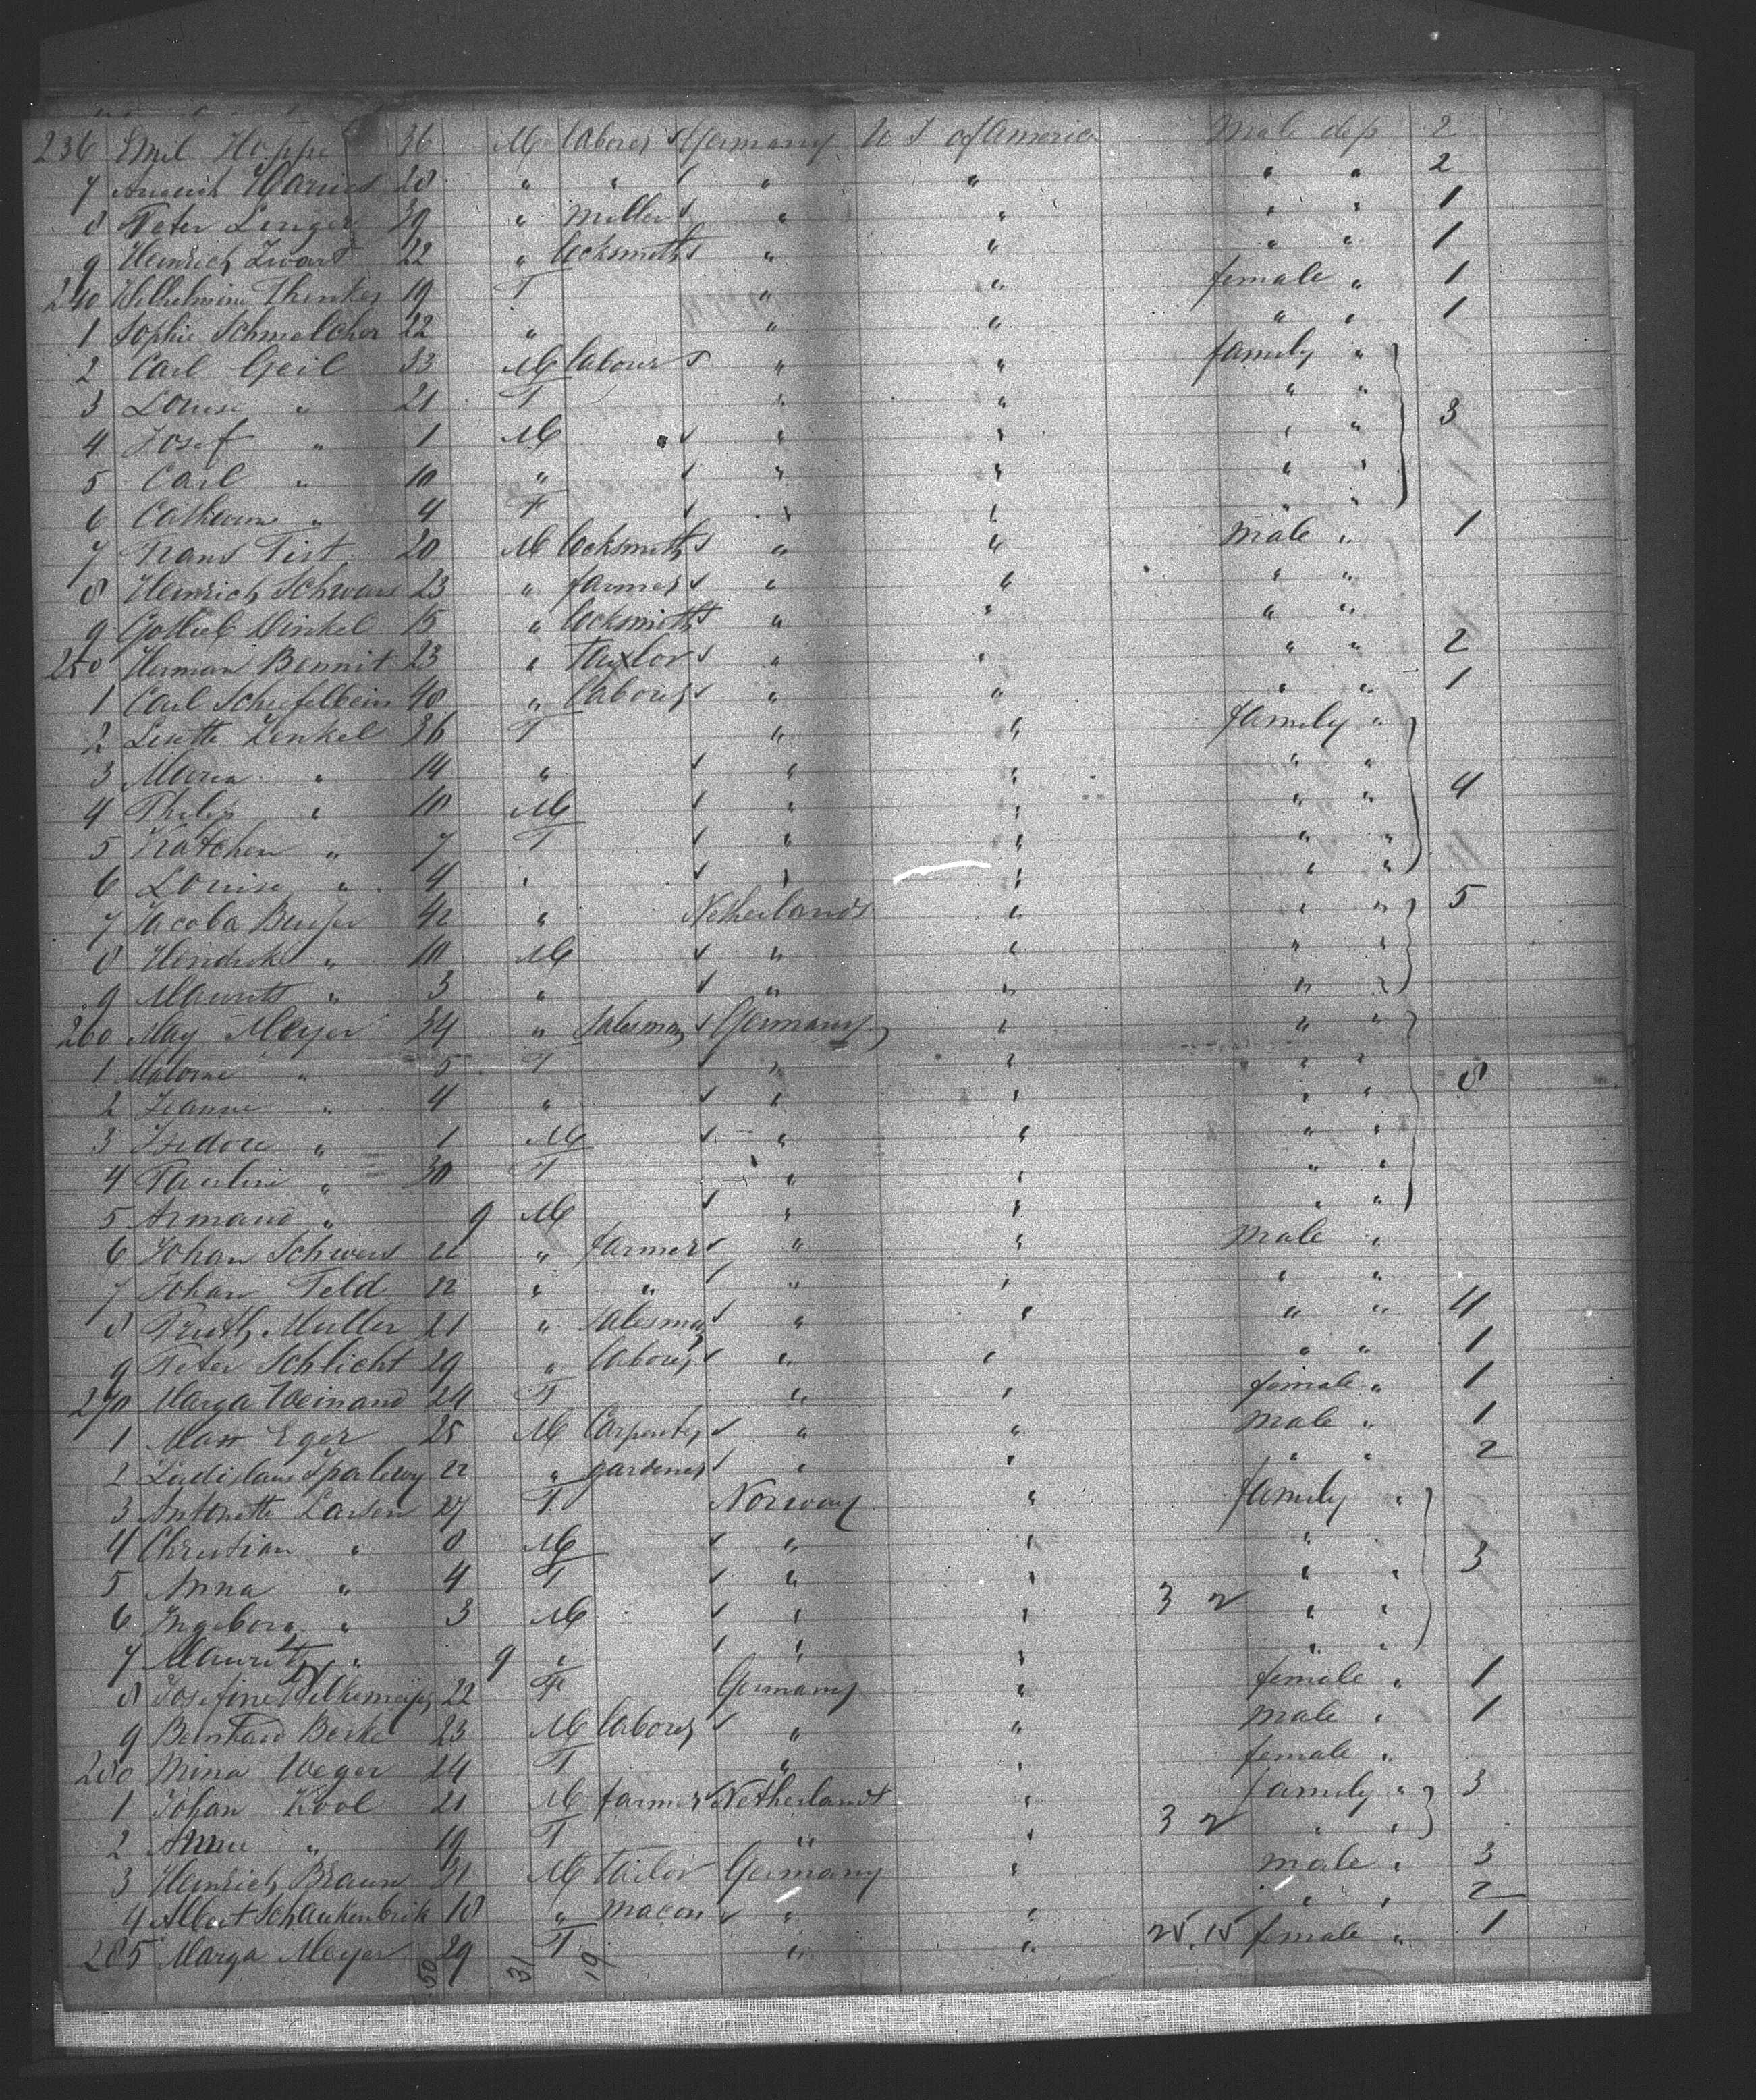 236 Emil Hoppe 36 M laborer Germany U S of America Male dep 2
7 Harries 28 " " " " " " 2
8 Peter Linger 39 " miller " " " " 1
9 Heinrich Zwart 22 " locksmith " " " " 1
240 Wilhelmine Thenker 19 F " " female " 1
1 Sophie Schmelcher 22 " " " " " 1
2 Carl Geil 33 M labour " " family "
3 Louise " 21 F " " " "
4 Josef " 1 M " " " " 3
5 Carl " 10 " " " " "
6 Catharine " 4 F " " " "
7 Frans Fist 20 M locksmith " " Male " 1
8 Heinrich Schwars 23 " farmer " " " "
9 Gottlieb Winkel 15 " locksmith " " " "
250 Herman Bennit 23 " Taylor " " " " 2
1 Carl Schiefelbein 48 " laborer " " " " 1
2 Lisette Zenkel 36 F " " family "
3 Maria " 14 " " " " "
4 Philip " 10 M " " " " 4
5 Katchen " 7 F " " " "
6 Louise " 4 " " " " "
7 Jacoba 42 " Netherlands " " " 5
8 Hendrik " 10 M " " " "
9 Maurits " 3 " " " " "
260 May Meyer 34 " Salesman Germany " " "
1 " 5 F " " " "
2 Jeanne " 4 " " " " " 8
3 Isidore " 1 M " " " "
4 Pauline " 30 F " " " "
5 Armand " 9 M " " " "
6 Johan Schwers 22 " farmer " " Male "
7 Johan Feld 22 " " " " " "
8 Muller 21 " Salesman " " " " 4
9 Peter Schlicht 29 " laborer " " " " 1
270 Marga Weinand 24 F " " female " 1
1 Max Eger 25 M Carpenter " " Male " 1
2 Ladislaus 22 " gardener " " " " 2
3 Antonette Larsen 27 F Norway " family "
4 Christian " 8 M " " "
5 Anna " 4 F " " " " 3
6 Ingeborg " 3 M " " 3 2 " "
7 Mauritz " 9 " " " " "
8 Josefine 22 F Germany " female " 1
9 Bernhard Beeke 23 M laborer " " Male " 1
280 Mina Weger 24 F " " female "
1 Johan Kool 21 M farmer Netherlands " family " 3
2 Anna " 19 F " " 3 2 " "
3 Heinrich Braun 31 M Tailor Germany " male " 3
4 Albert Schaukenbrik 18 " macon " " " " 2
285 Marga Meyer 29 F " " 25.15 female " 1
50 31 19